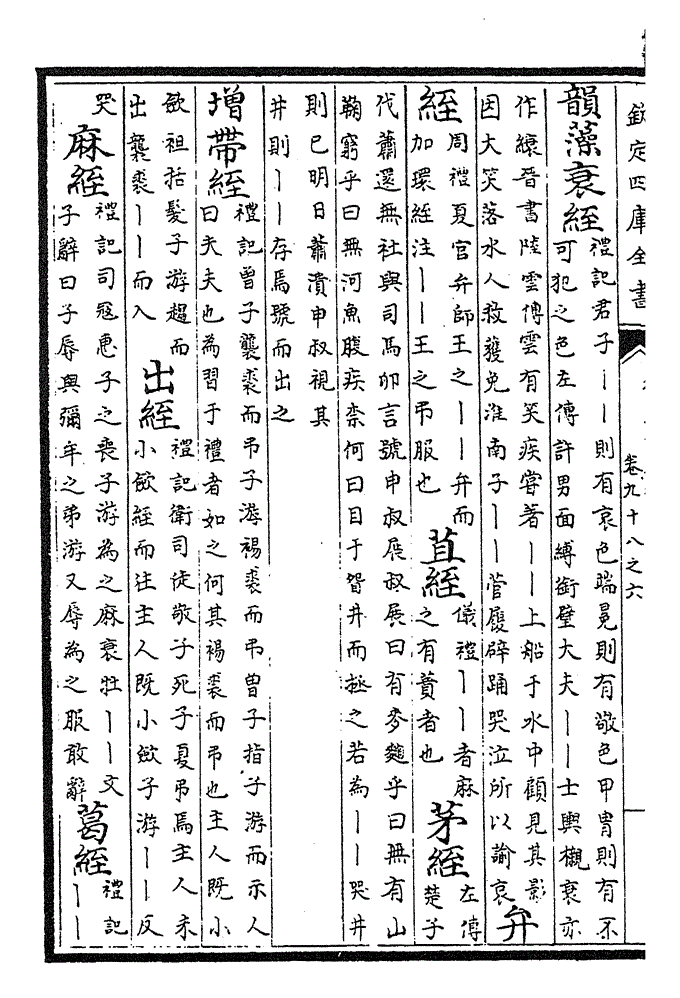 欽定四庫全書
卷九十八之六
韻藻衰絰
禮記君子丨丨則有哀色端冕則有敬色甲胄則有不
可犯之色左傳許男面縛銜璧大夫丨丨士輿櫬衰亦
作縗晉書陸雲傳雲有笑疾嘗著丨丨上船于水中顧見其影
因大笑落水人救獲免淮南子丨丨菅屨辟踊哭泣所以諭哀
弁
絰
周禮夏官弁師王之丨丨弁而
加環絰注丨丨王之弔服也
苴絰
儀禮丨丨者麻
之有蕡者也
茅絰
左傳
楚子
伐蕭還無社與司馬卯言號申叔展叔展曰有麥麴乎曰無有山
鞠窮乎曰無河魚腹疾柰何曰目于眢井而拯之若為丨丨哭井
則已明日蕭潰申叔視其
井則丨丨存焉號而出之
增帶絰
禮記曾子襲裘而弔子游裼裘而弔曾子指子游而示人
曰夫夫也為習于禮者如之何其裼裘而弔也主人既小
斂袒括髮子游趨而
出襲裘丨丨而入
出絰
禮記衛司徒敬子死子夏弔焉主人未
小斂絰而往主人既小斂子游丨丨反
哭
麻絰
禮記司寇惠子之喪子游為之麻衰牡丨丨文
子辭曰子辱與彌年之弟游又辱為之服敢辭
葛絰
禮記
丨丨